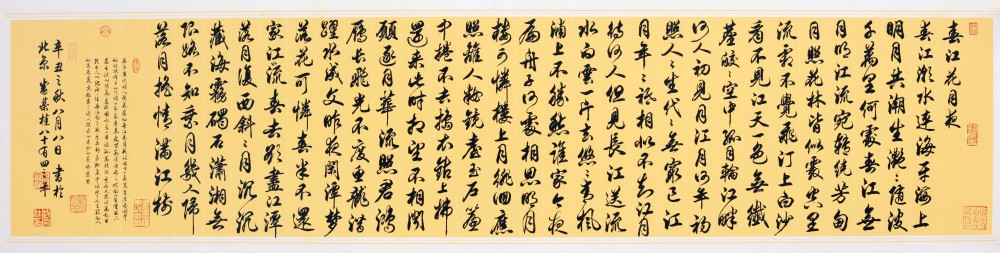 春江花月夜
春江潮水連海平海上
明月共潮生灩〻隨波
千萬里何處春江無
月明江流宛轉繞芳甸
月照花林皆似霰空里
流霜不覺飛汀上白沙
看不見江天一色無纖
塵皎〻空中孤月輪江畔
何人初見月江月何年初
照人人生代〻無窮已江
月年〻祇相似不知江月
待何人但見長江送流
水白雲一片去悠〻青楓
浦上不勝愁誰家今夜
扁舟子何處相思明月
樓可憐樓上月徘徊應
照離人妝鏡臺玉戶簾
中捲不去搗衣砧上拂
還來此時相望不相聞
願逐月華流照君鴻
雁長飛光不度魚龍潛
躍水成文昨夜閑潭夢
落花可憐春半不還
家江流春去欲盡江潭
落月復西斜斜月沉沉
藏海霧碣石瀟湘無
限路不知乘月幾人歸
落月搖情滿江樹
辛丑之秋八月八日書於
北京八十有四之年